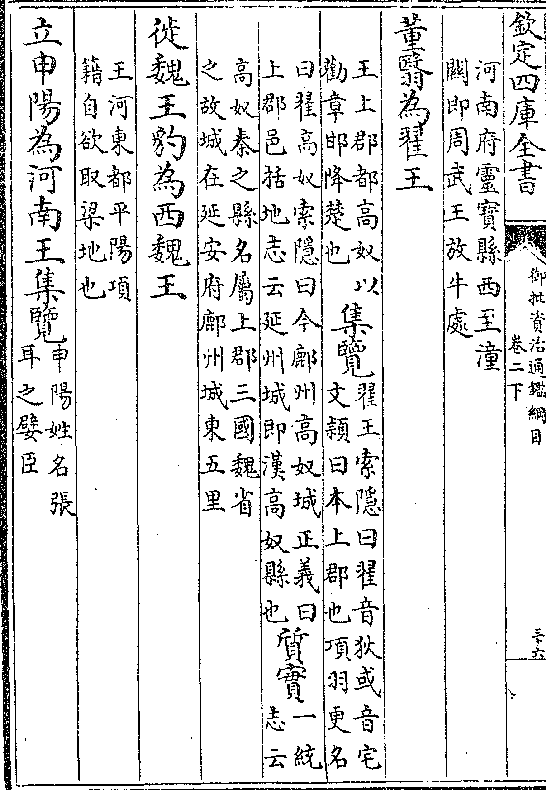 欽定四庫全書
御批資治通鑑綱目
卷二下
三十六
河南府靈寶縣西至潼
關即周武王放牛處
董翳為翟王
王上郡都高奴以
勸章邯降楚也
集覽
翟王索隱曰翟音狄或音宅
文穎曰本上郡也項羽更名
曰翟高奴索隱曰今鄜州高奴城正義曰
上郡邑括地志云延州城即漢高奴縣也
質實
一統
志云
高奴秦之縣名屬上郡三國魏省
之故城在延安府鄜州城東五里
徙魏王豹為西魏王
王河東都平陽項
籍自欲取梁地也
立申陽為河南王集覽
申陽姓名張
耳之嬖臣